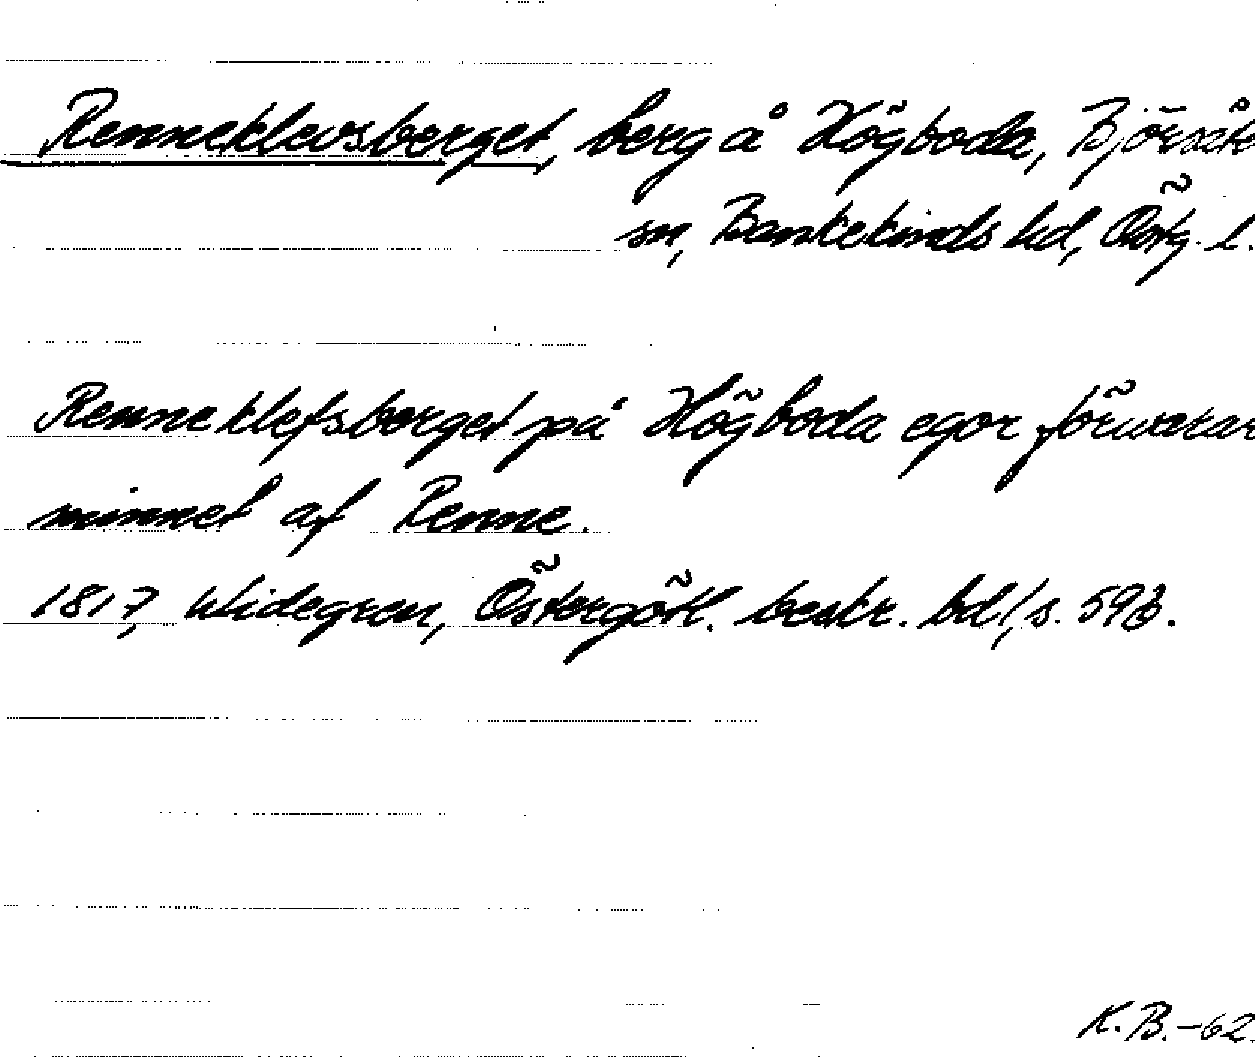 Renneklevsberget, berg å Högboda, Björsäte
sn, Bankekinds hd, Östg. l.
Renneklefsberget på Högboda egor förwarar
minnet af Renne.
1817, Widegren, Östergötl. beskr. bd 1, s. 593.
K.B.-62.